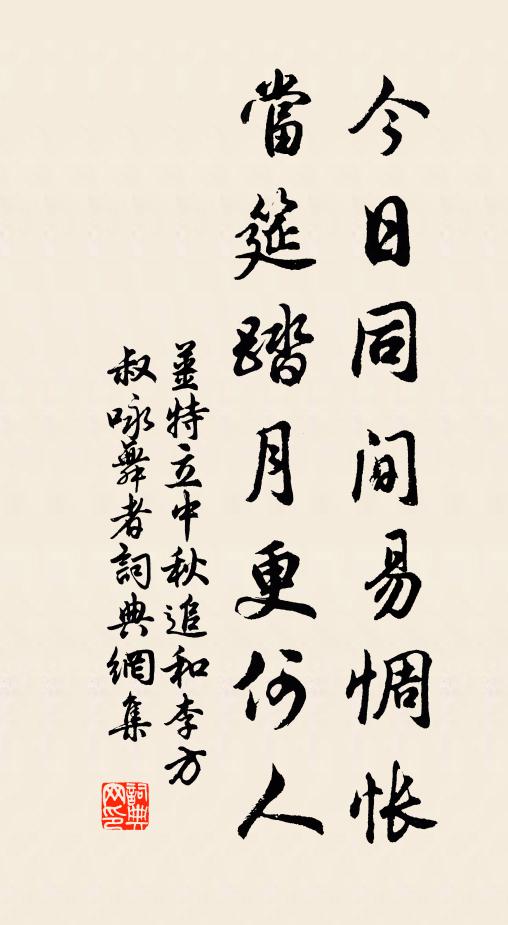 今日同间易惆怅
當筵踏月更何人
姜特立中秋追和李方
叔咏舞者詞典網集
詞典网印